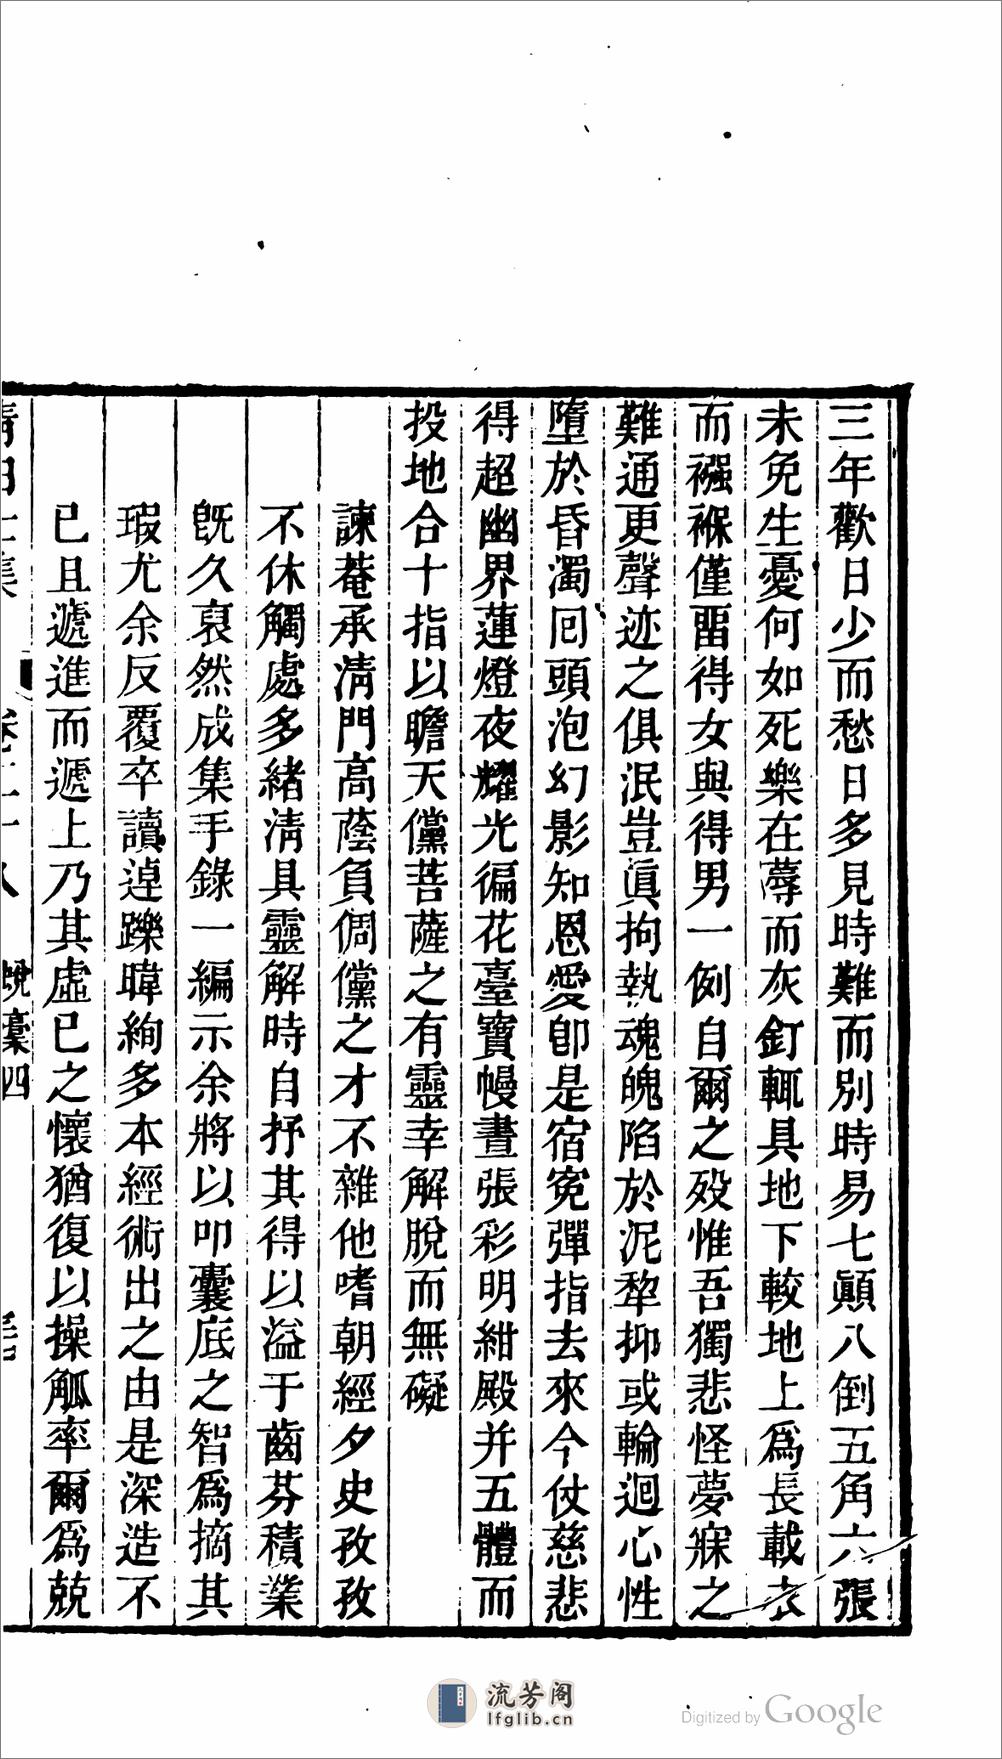 三年歡日少而愁日多見時難而別時易七顚八倒五角六張
未免生憂何如死樂在蓐而灰釘輒具地下較地上爲長載衣
而襁褓僅畱得女與得男一例自爾之歿惟吾獨悲怪夢寐之
難通更聲迹之俱泯豈眞拘執魂魄陷於泥犂抑或輪迴心性
墮於昏濁回頭泡幻影知恩愛卽是宿寃彈指去來今仗慈悲
得超幽界蓮燈夜耀光徧花臺寶幔晝張彩明紺殿并五體而
投地合十指以瞻天儻菩薩之有靈幸解脫而無礙
諫菴承淸門高蔭負倜儻之才不雜他嗜朝經夕史孜孜
不休觸處多緒淸具靈解時自抒其得以溢于齒芬積業
旣久裒然成集手錄一編示余將以叩囊底之智爲摘其
瑕尤余反覆卒讀逴躒暐絢多本經術出之由是深造不
已且遞進而遞上乃其虛已之懷猶復以操觚率爾爲兢
淸白士集 卷二十八 蛻稾四
流芳阁
lfglib.cn
Digitized by Google